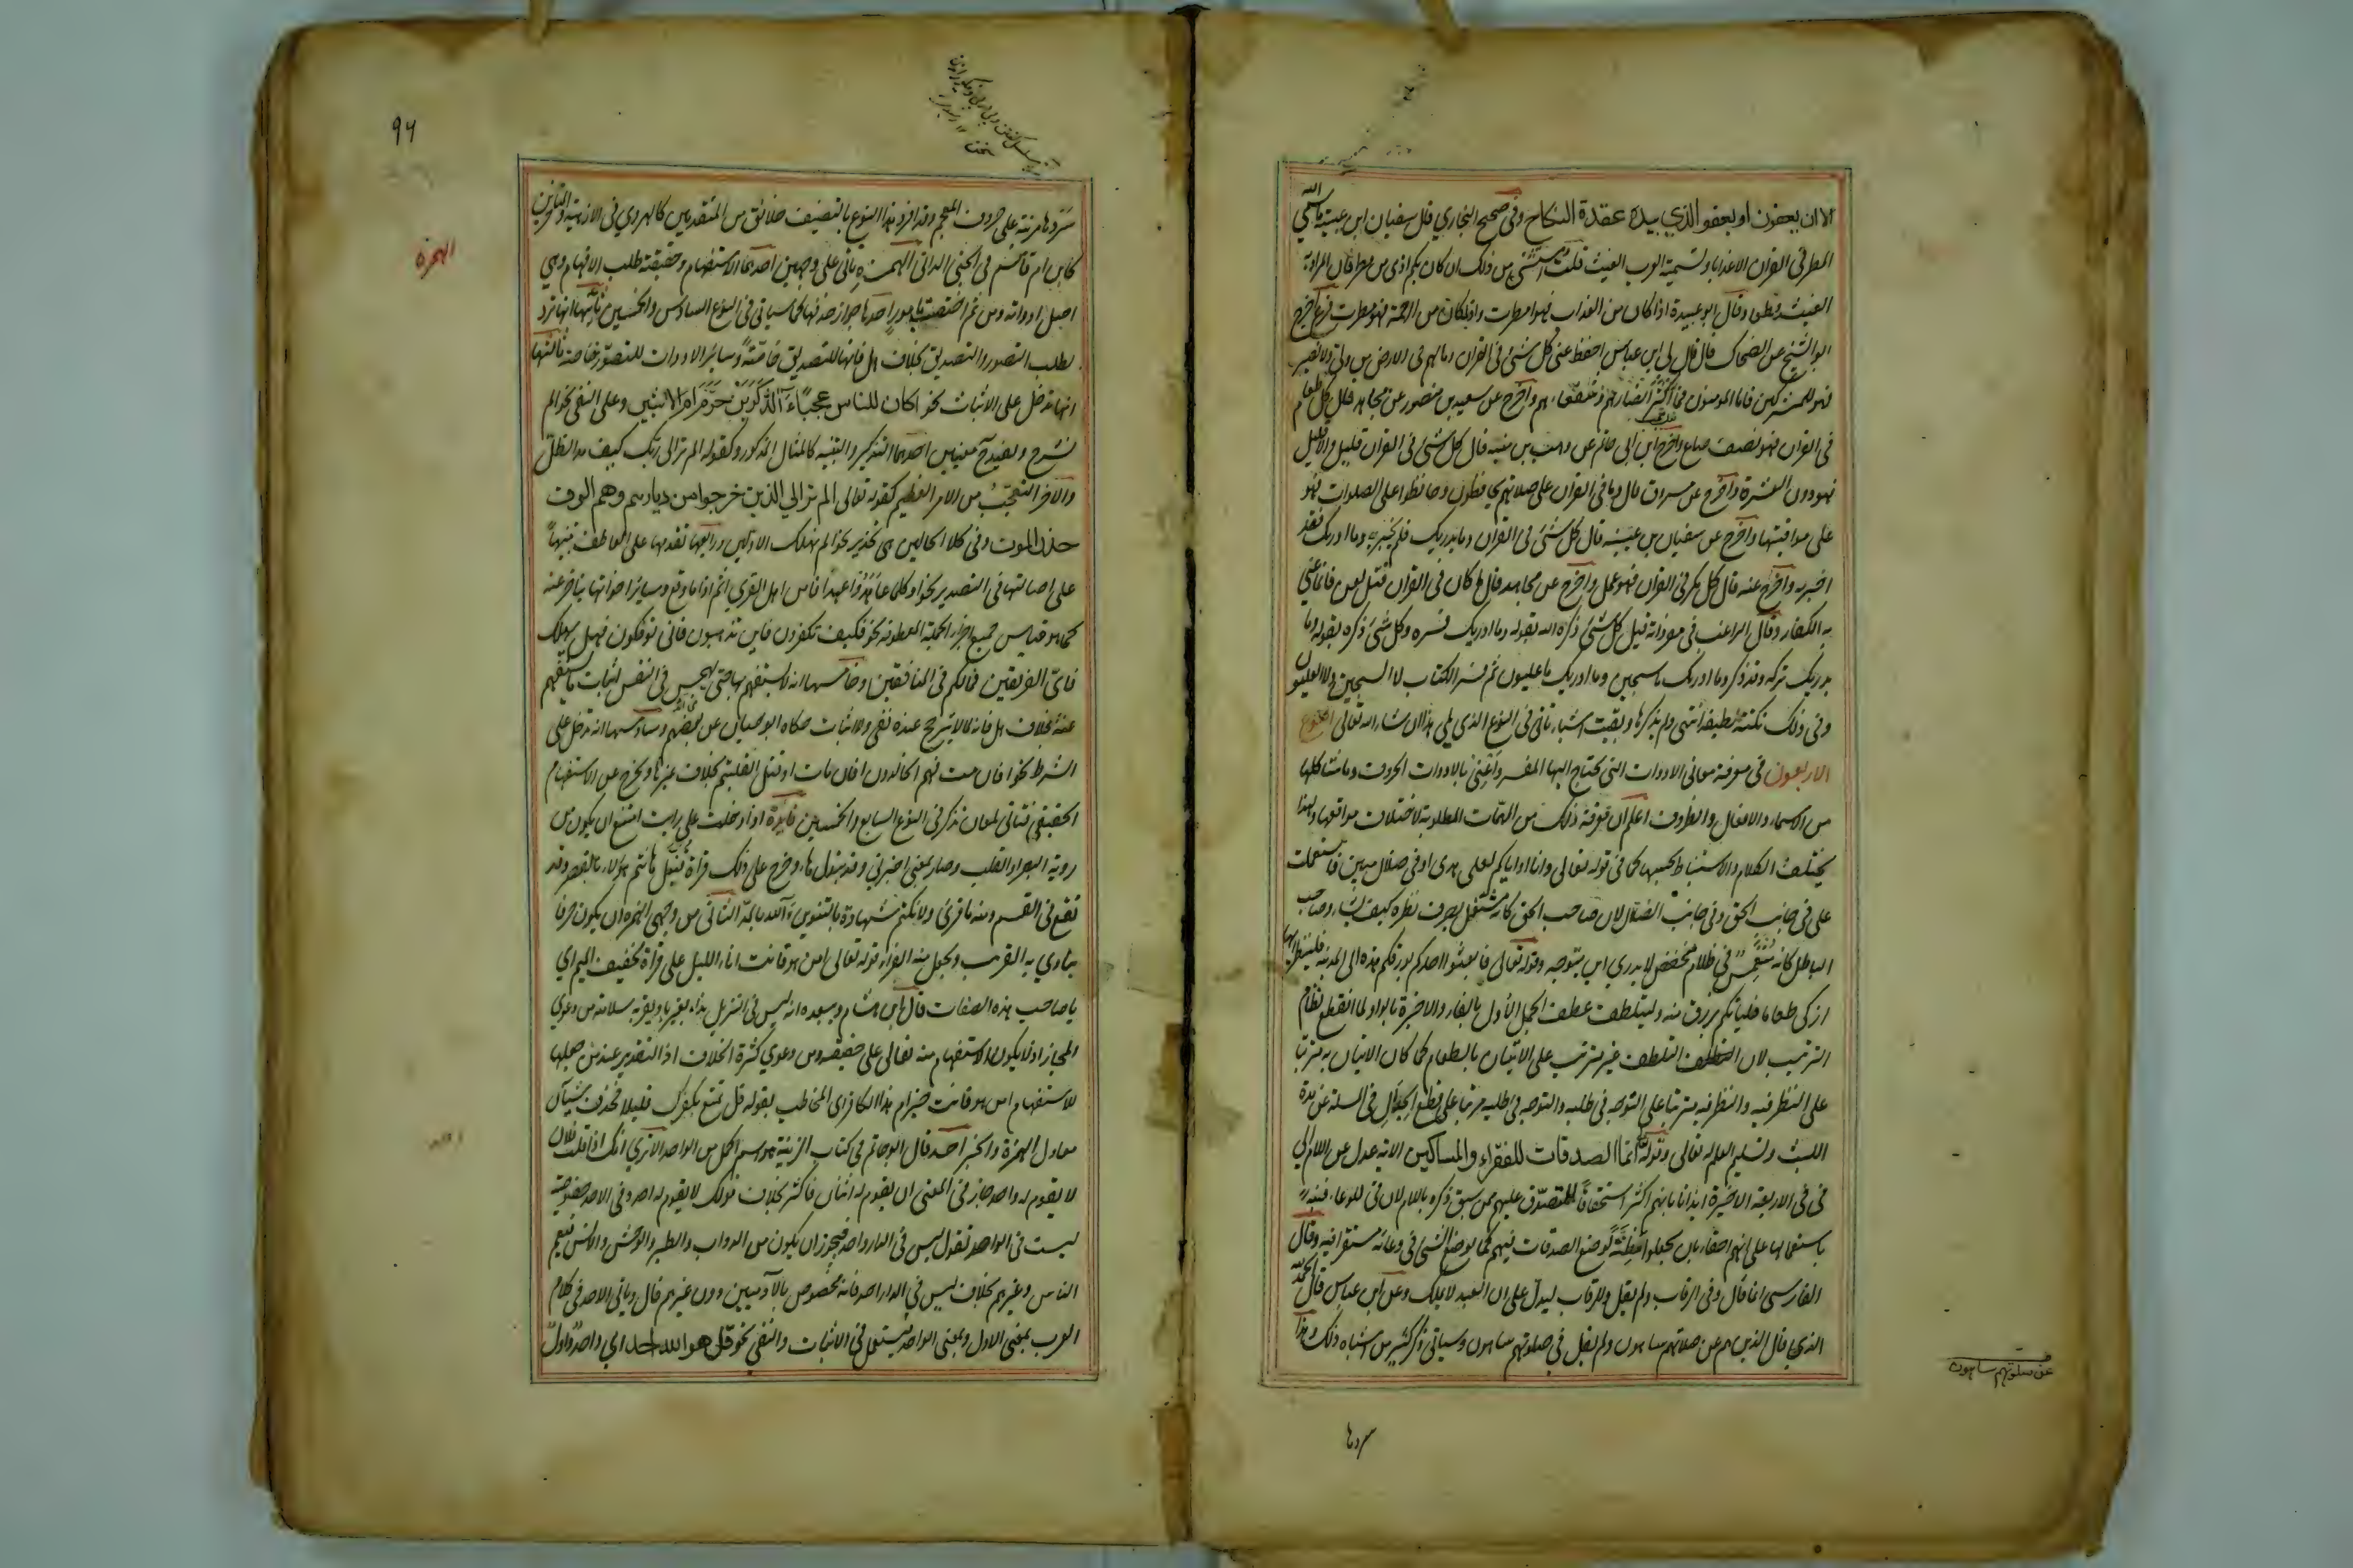 الا ان يعفون او يعفو الذي بيده عقدة النكاح وفي صحيح البخاري قال سفيان ابن عيينة ما سمي الله
المطر في القران الا عذابا وتسمية العرب الغيث قلت استثني من ذلك ان كان بكم اذى من مطر فان المراد به
الغيث قطعا وقال ابو عبيدة اذا كان من العذاب فهو امطرت واذا كان من الرحمة فهو مطرت فرع اخرج
ابو الشيخ عن الضحاك قال قال لي ابن عباس احفظ عني كل شئ في القران وما لهم في الارض من ولي ولا نصير
فهو للمشركين فاما المومنون فما اكثر انصارهم وشفعاءهم واخرج عن سعيد بن منصور عن مجاهد قال كل طعام
في القران فهو نصف صاع واخرج ابن ابي حاتم عن وهب بن منبه قال كل شئ في القران قليل والا قليل
فهو دون العشرة واخرج عن مسروق قال وما في القران على صلاتهم يحافظون وحافظوا على الصلوات فهو
على مواقيتها واخرج عن سفيان بن عيينه قال كل شئ في القران وما يدريك فلم يخبر به وما ادريك فقد
اخبر به واخرج عنه قال كل مكر في القران فهو عمل واخرج عن مجاهد قال ما كان في القران قتل لعن فانما عني
به الكفار وقال الراغب في مفرداته قيل كل شئ ذكره الله بقوله وما ادريك فسره وكل شئ ذكره بقوله وما
يدريك تركه وقد ذكر وما ادريك ما سجين وما ادريك ما عليون ثم فسر الكتاب لا السجين ولا العليون
وفي ذلك نكتة لطيفة انتهى ولم يذكرها وبقيت اشياء تاتي في النوع الذي يلي هذا ان شاء الله تعالى النوع
الاربعون في معرفة معاني الادوات التي يحتاج اليها المفسر واعني بالادوات الحروف وما شاكلها
من الاسماء والافعال والظروف اعلم ان معرفة ذلك من المهمات المطلوبة لاختلاف مواقعها ولهذا
يختلف الكلام والاستنباط بحسبها كما في قوله تعالى وانا او اياكم لعلى هدى او في ضلال مبين فاستعملت
على في جانب الحق وفي جانب الضلال لان صاحب الحق كانه مستعل يصرف نظره كيف شاء وصاحب
الباطل كانه منغمس في ظلام منخفض لا يدري اين يتوجه وقوله تعالى فابعثوا احدكم بورقكم هذه الى المدينة فلينظر ايها
ازكى طعاما فلياتكم برزق منه وليتلطف عطف الجمل الاول بالفاء والاخيرة بالواو لما انقطع نظام
الترتيب لان التلطف غير مترتب على الاتيان بالطعام كما كان الاتيان به مترتبا
على النظر فيه والنظر فيه مترتبا على التوجه في طلبه والتوجه في طلبه مرتبا على قطع الجدال في المسئلة عن مدة
اللبث وتسليم العلم له تعالى وقوله انما الصدقات للفقراء والمساكين الاية عدل عن اللام الى
في في الاربعة الاخيرة ايذانا بانهم اكثر استحقاقا للمتصدق عليهم ممن سبق ذكره باللام لان في للوعاء فنبه
باستعمالها على انهم احقاء بان يجعلوا مظنة لوضع الصدقات فيهم كما يوضع الشئ في وعائه مستقرا فيه وقال
الفارسي انما قال وفي الرقاب ولم يقل وللرقاب ليدل على ان العبد لا يملك وعن ابن عباس قال الحمد لله
الذي قال الذين هم عن صلاتهم ساهون ولم يقل في صلوتهم ساهون وسياتي ذكر كثير من اشباه ذلك وهذا
عن صلوتهم ساهون
سردها
٩٦
الهمزة
سردها مرتبة على حروف المعجم وقد افرد هذا النوع بالتصنيف خلائق من المتقدمين كالهروي في الازهية والمتاخرين
كابن ام قاسم في الجنى الداني الهمزة ياتي على وجهين احدهما الاستفهام وحقيقته طلب الافهام وهي
اصل ادواته ومن ثم اختصت بامور احدها جواز حذفها كما سياتي في النوع السادس والخمسين ثانيها انها ترد
لطلب التصور والتصديق بخلاف هل فانها للتصديق خاصة وسائر الادوات للتصور خاصة ثالثها
انها تدخل على الاثبات نحو اكان للناس عجبا ءالذكرين حرم ام الانثيين وعلى النفي نحو الم
نشرح وتفيد ح معنيين احدهما التذكير والتنبيه كالمثال المذكور وكقوله الم تر الى ربك كيف مد الظل
والاخر التعجب من الامر العظيم كقوله تعالى الم تر الي الذين خرجوا من ديارهم وهم الوف
حذر الموت وفي كلا الحالين هي تحذير نحو الم نهلك الاولين ورابعها تقدمها على العاطف تنبيها
على اصالتها في التصدير نحو او كلما عاهدوا عهدا افامن اهل القرى اثم اذا ما وقع وسائر اخواتها يتاخر عنه
كما هو قياس جميع اجزاء الجملة المعطوفة نحو فكيف تكفرون فاين تذهبون فانى توفكون فهل يهلك
فاي الفريقين فما لكم في المنافقين وخامسها انه لا يستفهم بها حتى يهجس في النفس اثبات ما يستفهم
عنه بخلاف هل فانه لا يترجح عنده نفي ولا اثبات حكاه ابو حيان عن بعضهم وسادسها انه تدخل على
الشرط نحو افان مت فهم الخالدون افان مات او قتل انقلبتم بخلاف غيرها ويخرج عن الاستفهام
الحقيقي فتاتي لمعان تذكر في النوع السابع والخمسين فائدة اذا دخلت على رايت امتنع ان يكون من
روية البصر او القلب وصار بمعنى اخبرني وقد تبدل هاء وخرج على ذلك قراة قنبل هانتم هولاء بالقصر وقد
تقع في القسم ومنه ما قرئ ولا نكتم شهادة بالتنوين ءالله بالمد الثاني من وجهي الهمزة ان يكون حرفا
ينادي به القريب وجعل منه الفراء قوله تعالى امن هو قانت اناء الليل على قراة تخفيف الميم اي
يا صاحب هذه الصفات قال ابن هشام ويبعده انه ليس في التنزيل نداء بغير يا ويقربه سلامته من دعوي
المجاز اذ لا يكون الاستفهام منه تعالى على حقيقته ومن دعوي كثرة الحذف اذ التقدير عند من جعلها
للاستفهام امن هو قانت خير ام هذا الكافر اي المخاطب بقوله قل تمتع بكفرك قليلا فحذف شيئان
معادل الهمزة والخبر احد قال ابو حاتم في كتاب الزينة هو اسم اكمل من الواحد الا تري انك اذا قلت فلان
لا يقوم له واحد جاز في المعنى ان يقوم له اثنان فاكثر بخلاف قولك لا يقوم له احد وفي الاحد خصوصية
ليست في الواحد تقول ليس في الدار واحد فيجوز ان يكون من الدواب والطير والوحش والانس فيعم
الناس وغيرهم بخلاف ليس في الدار احد فانه مخصوص بالآدميين دون غيرهم قال وياتي الاحد في كلام
العرب بمعنى الاول وبمعنى الواحد فيستعمل في الاثبات والنفي نحو قل هو الله احد اي واحد واول